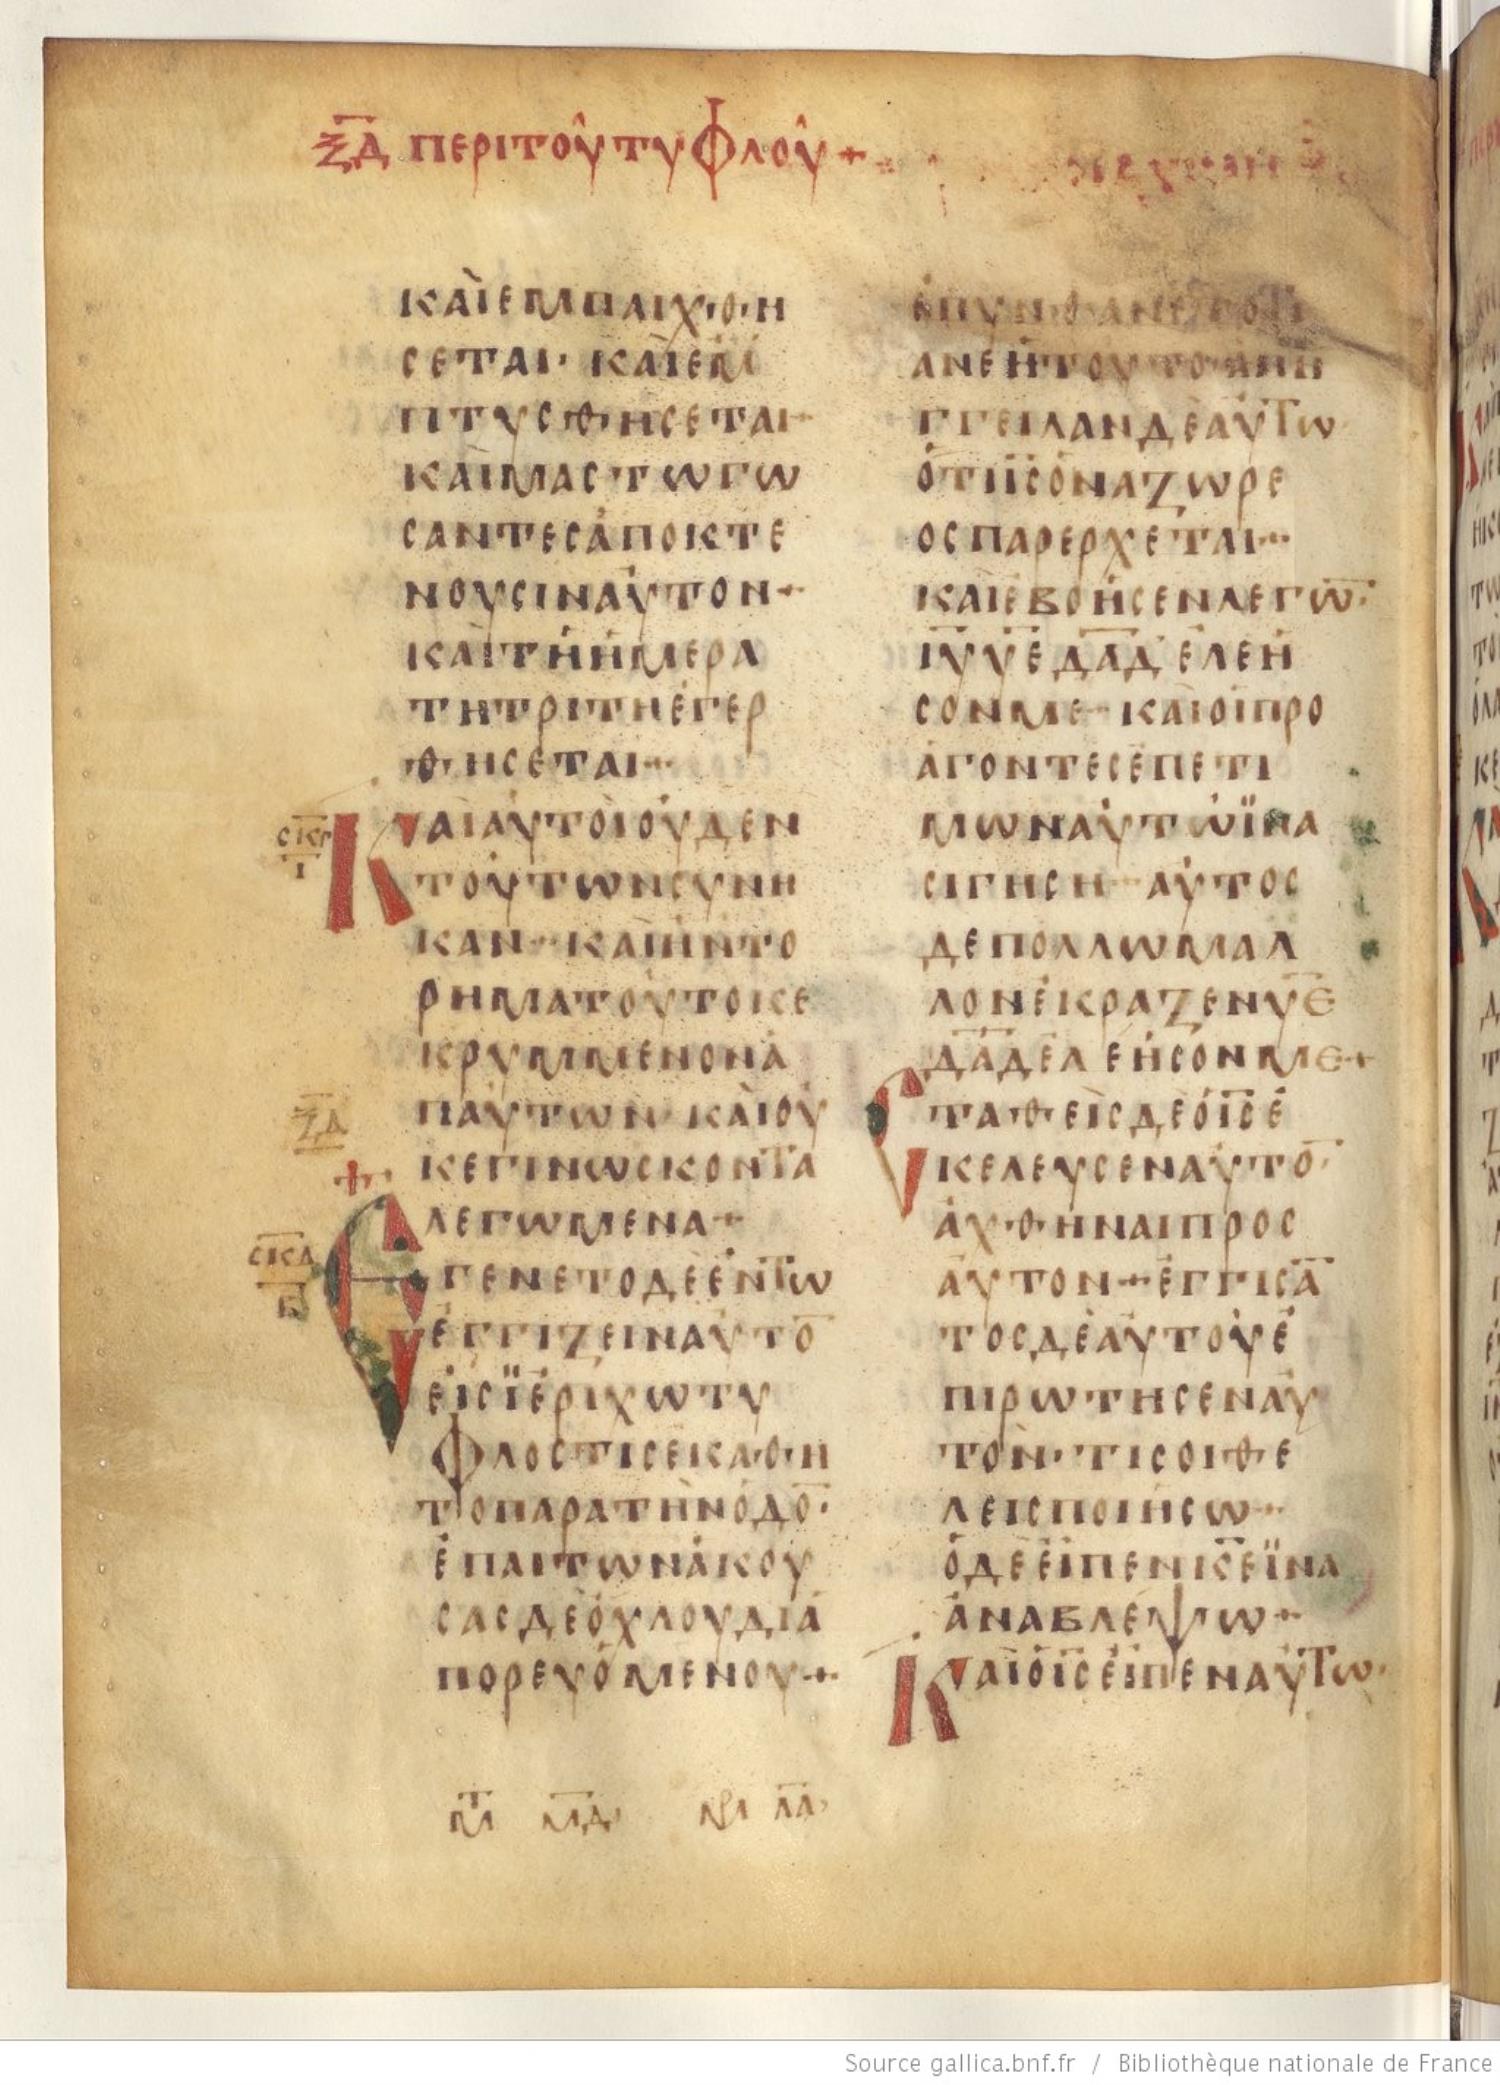 ΞΔ ΠΕΡΙ ΤΟΥ ΤΥΦΛΟΥ +
ΚΑΙ ΕΜΠΑΙΧΘΗ
ΣΕΤΑΙ· ΚΑΙ ΕΜ
ΠΤΥΣΘΗΣΕΤΑΙ
ΚΑΙ ΜΑΣΤΩΓΩ
ΣΑΝΤΕΣ ΑΠΟΚΤΕ
ΝΟΥΣΙΝ ΑΥΤΟΝ
ΚΑΙ ΤΗ ΗΜΕΡΑ
ΤΗ ΤΡΙΤΗ ΕΓΕΡ
ΘΗΣΕΤΑΙ
ΚΑΙ ΑΥΤΟΙ ΟΥΔΕΝ
ΤΟΥΤΩΝ ΣΥΝΗ
ΚΑΝ· ΚΑΙ ΗΝ ΤΟ
ΡΗΜΑ ΤΟΥΤΟ ΚΕ
ΚΡΥΜΜΕΝΟΝ Α
Π ΑΥΤΩΝ· ΚΑΙ ΟΥ
ΞΔ
ΚΕΓΙΝΩΣΚΟΝ ΤΑ
ΛΕΓΩΜΕΝΑ+
ΣΚΔ
Β
ΕΓΕΝΕΤΟ ΔΕ ΕΝ ΤΩ
ΕΓΓΙΖΕΙΝ ΑΥΤΟ̅
ΕΙΣ ΪΕΡΙΧΩ ΤΥ
ΦΛΟΣ ΤΙΣ ΕΚΑΘΗ
ΤΟ ΠΑΡΑ ΤΗΝ ΟΔΟ̅·
ΕΠΑΙΤΩΝ ΑΚΟΥ
ΣΑΣ ΔΕ ΟΧΛΟΥ ΔΙΑ
ΠΟΡΕΥΟΜΕΝΟΥ+
ΕΠΥΝΘΑΝΕΤΟ ΤΙ
ΑΝ ΕΗ ΤΟΥΤΟ· ΑΠΗ
ΓΓΕΙΛΑΝ ΔΕ ΑΥΤΩ
ΟΤΙ Ι̅Σ̅ Ο ΝΑΖΩΡΕ
ΟΣ ΠΑΡΕΡΧΕΤΑΙ
ΚΑΙ ΕΒΟΗΣΕΝ ΛΕΓΩ̅·
Ι̅Υ̅ Υ̅Ε̅ Δ̅Α̅Δ̅ ΕΛΕΗ
ΣΟΝ ΜΕ· ΚΑΙ ΟΙ ΠΡΟ
ΑΓΟΝΤΕΣ ΕΠΕΤΙ
ΜΩΝ ΑΥΤΩ ΪΝΑ
ΣΙΓΗΣΗ· ΑΥΤΟΣ
ΔΕ ΠΟΛΛΩ ΜΑΛ
ΛΟΝ ΕΚΡΑΖΕΝ Υ̅Ε̅
Δ̅Α̅Δ̅ ΕΛΕΗΣΟΝ ΜΕ+
ΣΤΑΘΕΙΣ ΔΕ Ο Ι̅Σ̅ Ε
ΚΕΛΕΥΣΕΝ ΑΥΤΟ̅·
ΑΧΘΗΝΑΙ ΠΡΟΣ
ΑΥΤΟΝ· ΕΓΓΙΣΑ̅
ΤΟΣ ΔΕ ΑΥΤΟΥ Ε
ΠΙΡΩΤΗΣΕΝ ΑΥ
ΤΟΝ· ΤΙ ΣΟΙ ΘΕ
ΛΕΙΣ ΠΟΙΗΣΩ
Ο ΔΕ ΕΙΠΕΝ Κ̅Ε̅ ΪΝΑ
ΑΝΑΒΛΕΨΩ
ΚΑΙ Ο Ι̅Σ̅ ΕΙΠΕΝ ΑΥΤΩ·
Source gallica.bnf.fr / Bibliothèque nationale de France